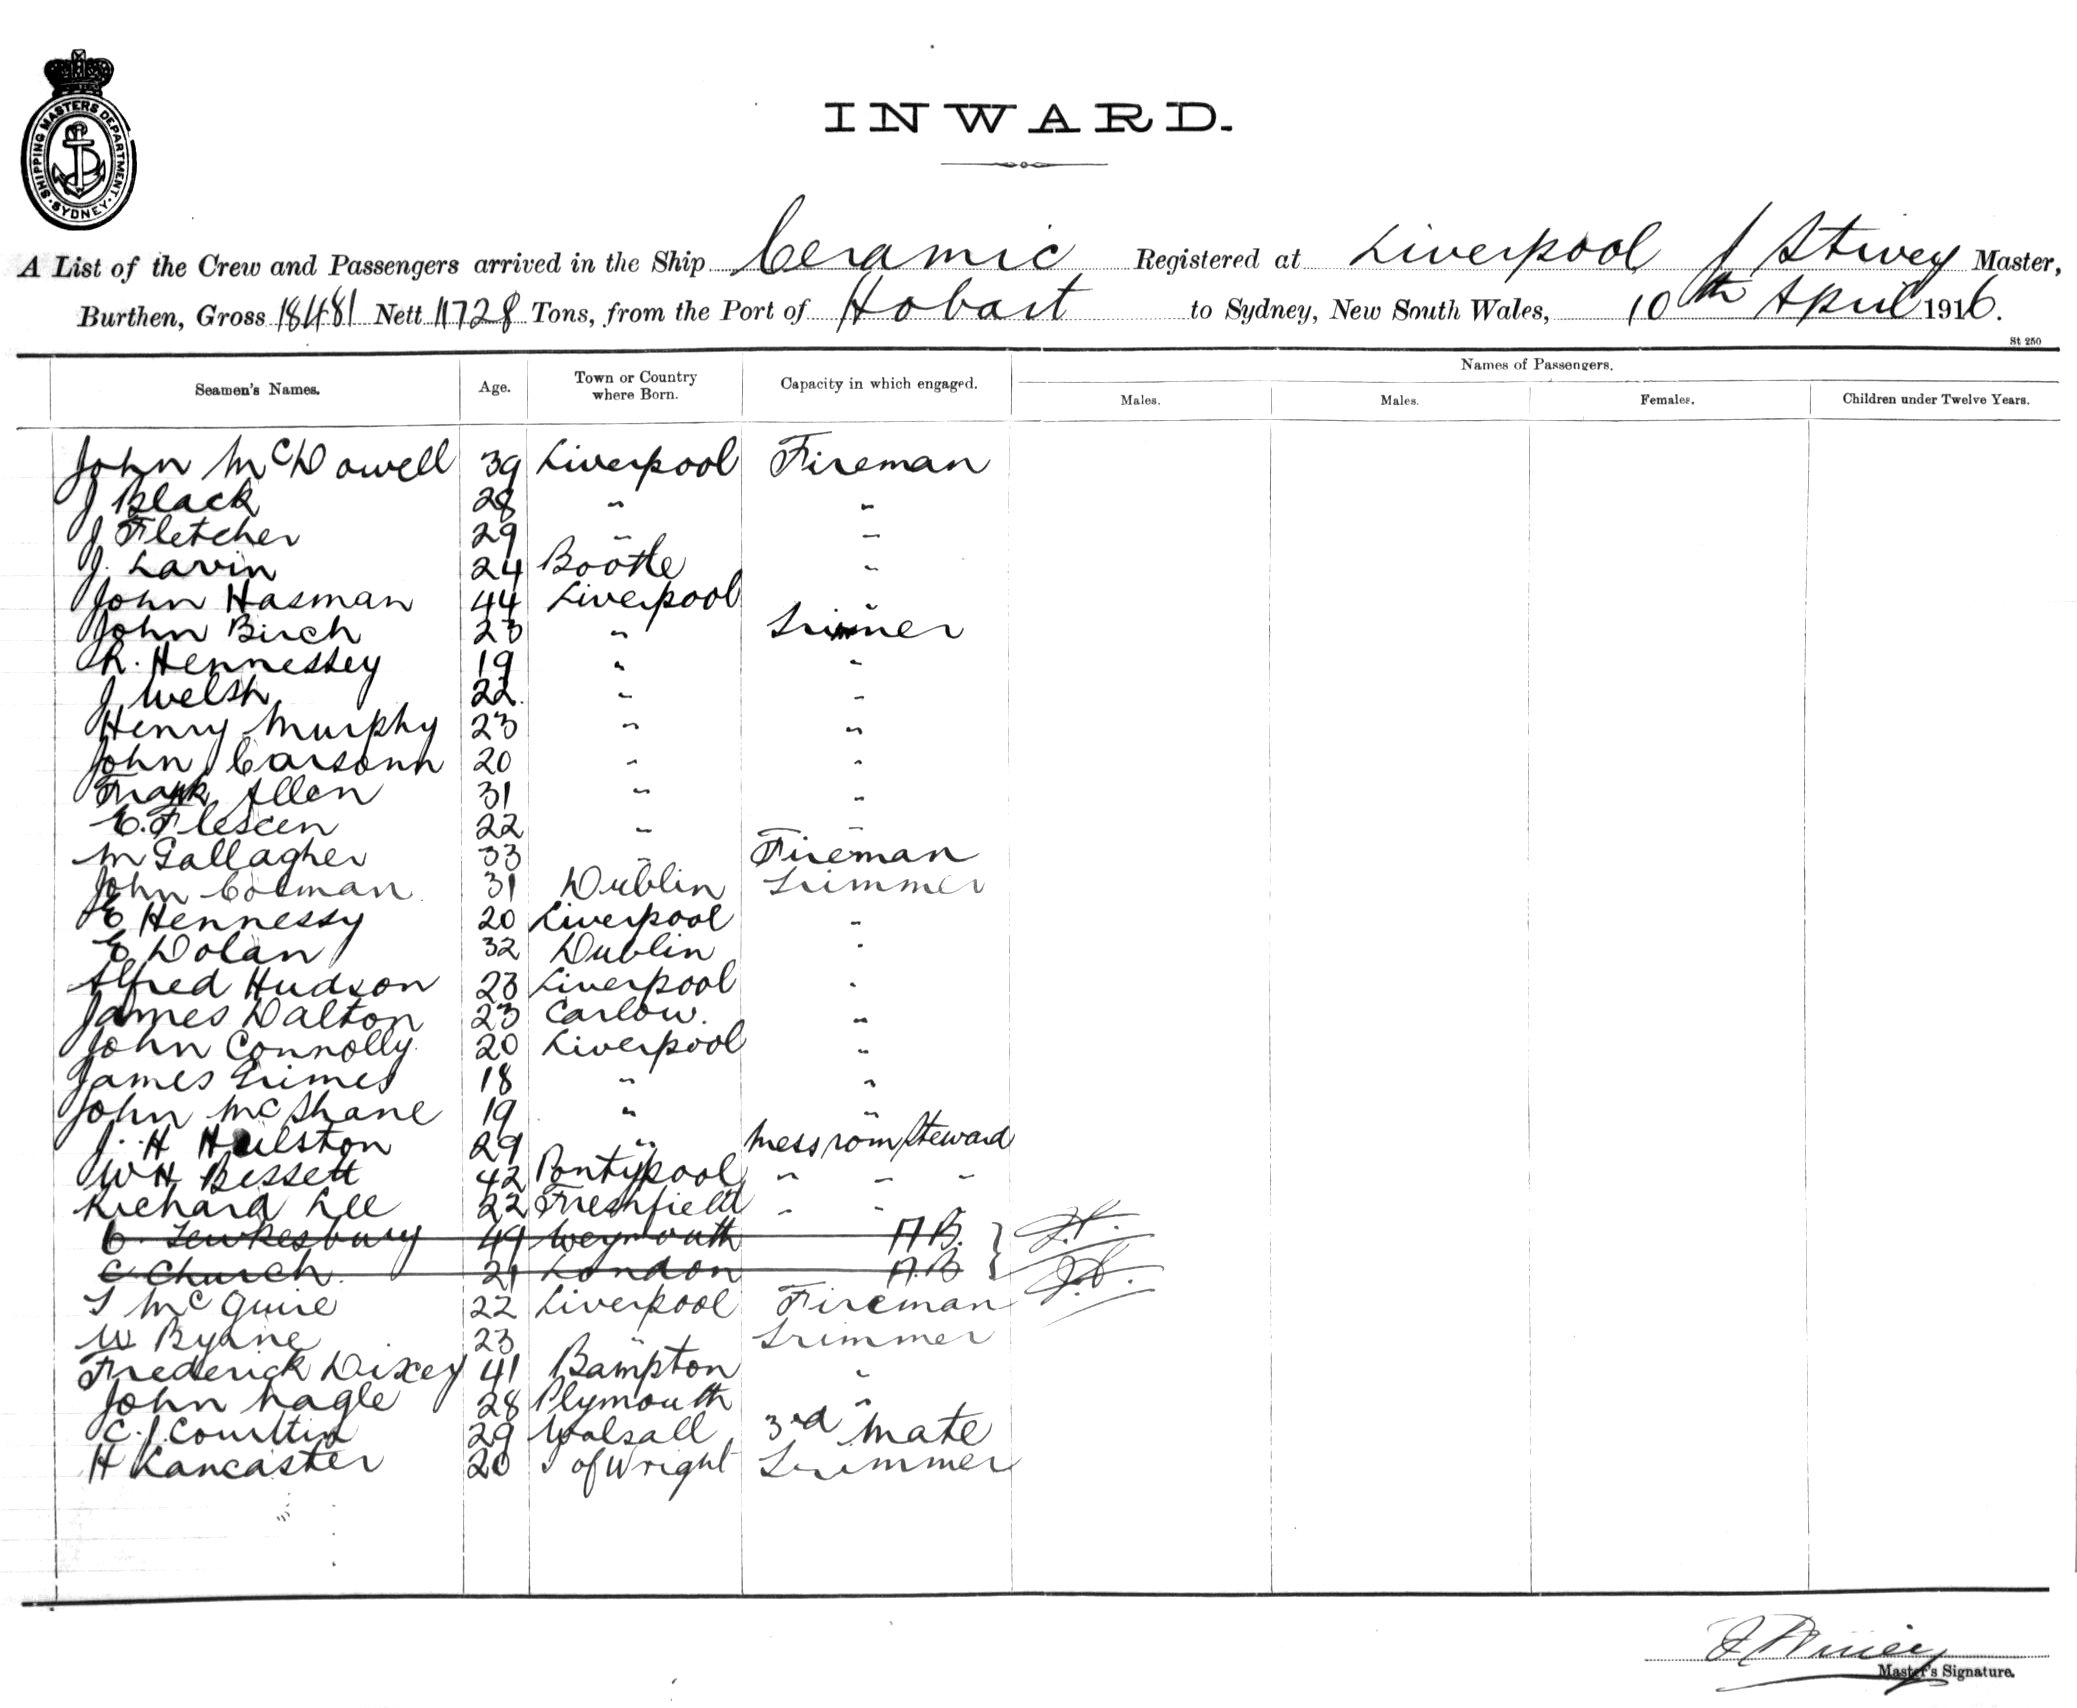 SHIPPING MASTERS DEPARTMENT
SYDNEY
INWARD.
A List of the Crew and Passengers arrived in the Ship Ceramic Registered at Liverpool J Stivey Master,
Burthen, Gross 18481 Nett 11728 Tons, from the Port of Hobart to Sydney, New South Wales, 10th April 1916.
St 250
Seamen's Names. Age. Town or Country where Born. Capacity in which engaged. Names of Passengers.
Males. Males. Females. Children under Twelve Years.
John McDowell 39 Liverpool Fireman
J Black 28 " "
J Fletcher 29 " "
J. Lavin 24 Bootle "
John Hasman 44 Liverpool "
John Birch 23 " Trimmer
R. Hennessey 19 " "
J Welsh 22 " "
Henry Murphy 23 " "
John Carsonn 20 " "
Frank Allen 31 " "
E. 22 " "
M Gallagher 33 " Fireman
John Colman 31 Dublin Trimmer
E Hennessy 20 Liverpool "
E Dolan 32 Dublin "
Alfred Hudson 23 Liverpool "
James Dalton 23 Carlow. "
John Connolly 20 Liverpool "
James Grimes 18 " "
John McShane 19 " "
J. H Hulston 29 " Mess rom Steward
WH Bessett 42 Pontypool " " "
Richard Lee 22 Freshfield " "
C. Tewkesbury 49 Weymouth A.B.
C Church 21 London A.B
T McGuire 22 Liverpool Fireman
W Byrne 23 " Trimmer
Frederick Dixey 41 Bampton "
John Nagle 28 Plymouth "
C. J. 29 Walsall 3rd Mate
H Lancaster 20 I of Wright Trimmer
Master's Signature.